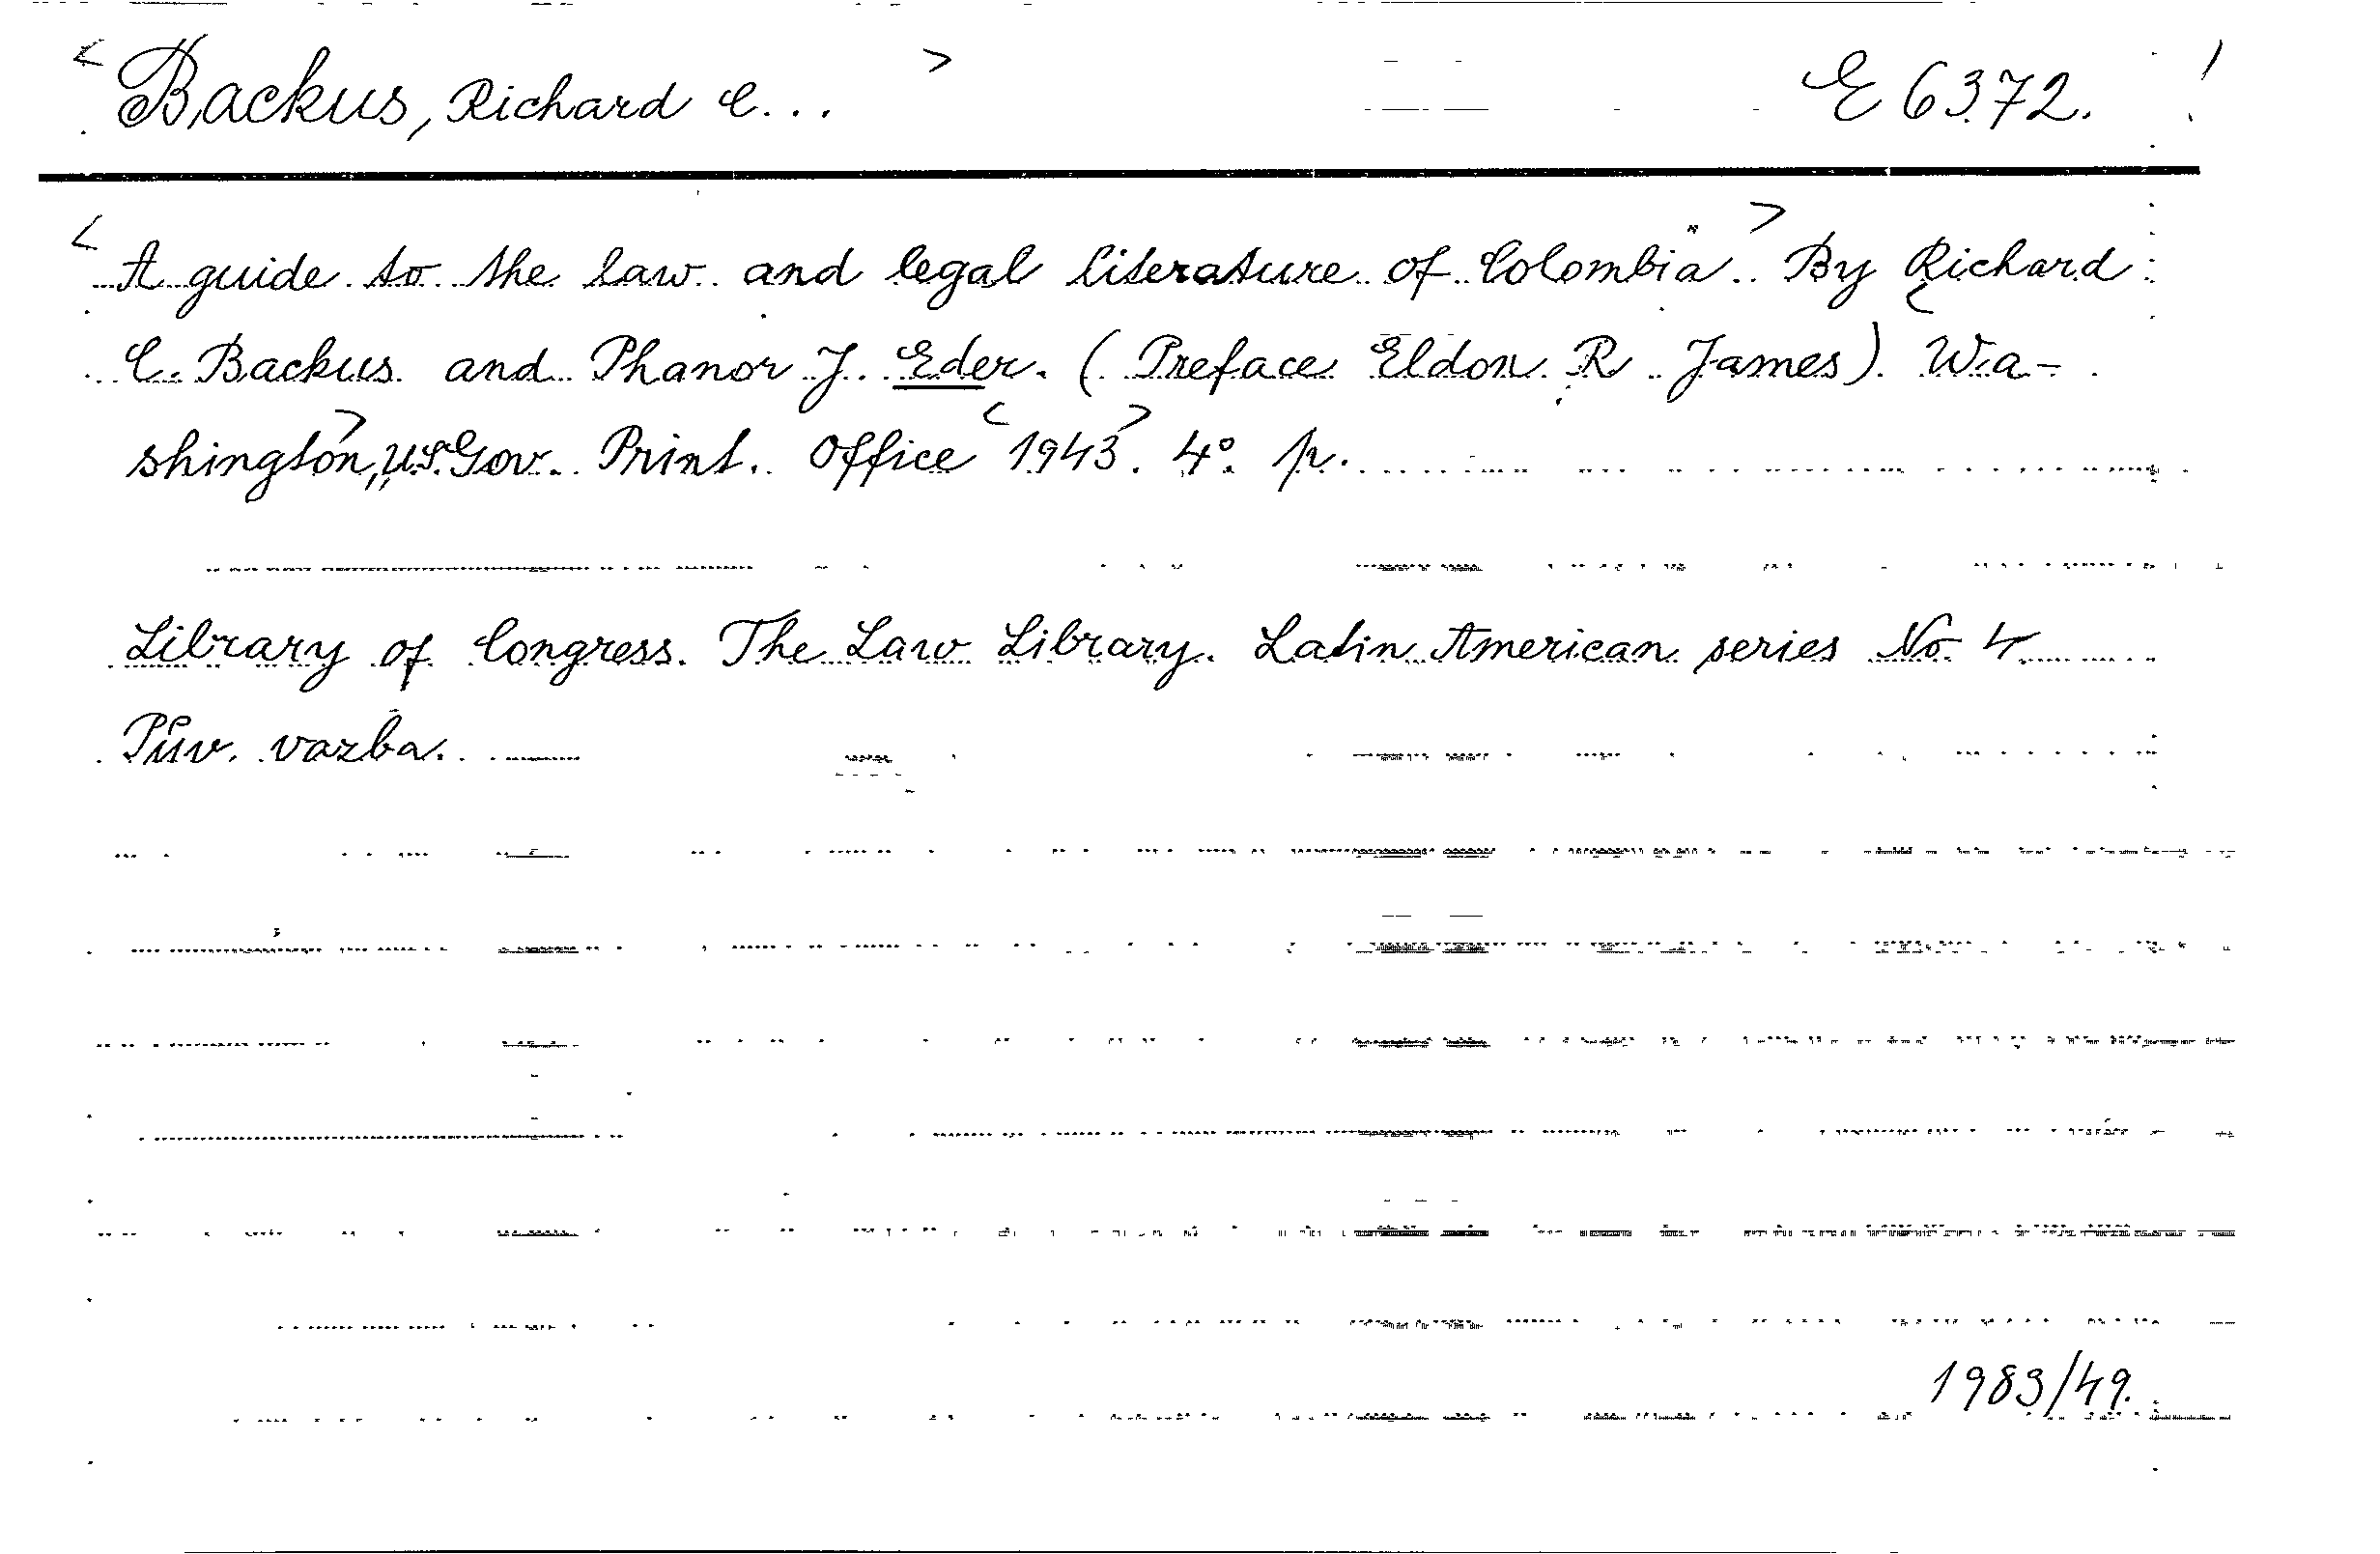 < Backus, Richard C... > E 6372.
< A guide to the law and legal literature of Colombia > By Richard
C. Backus and Phanor J. Eder. (Preface Eldon R James). < Wa-
shington >, U.S. Gov. Print. Office < 1943 >. 4°. p.
Library of Congress. The Law Library. Latin American series No 4
Pův. vazba.
1983/49.